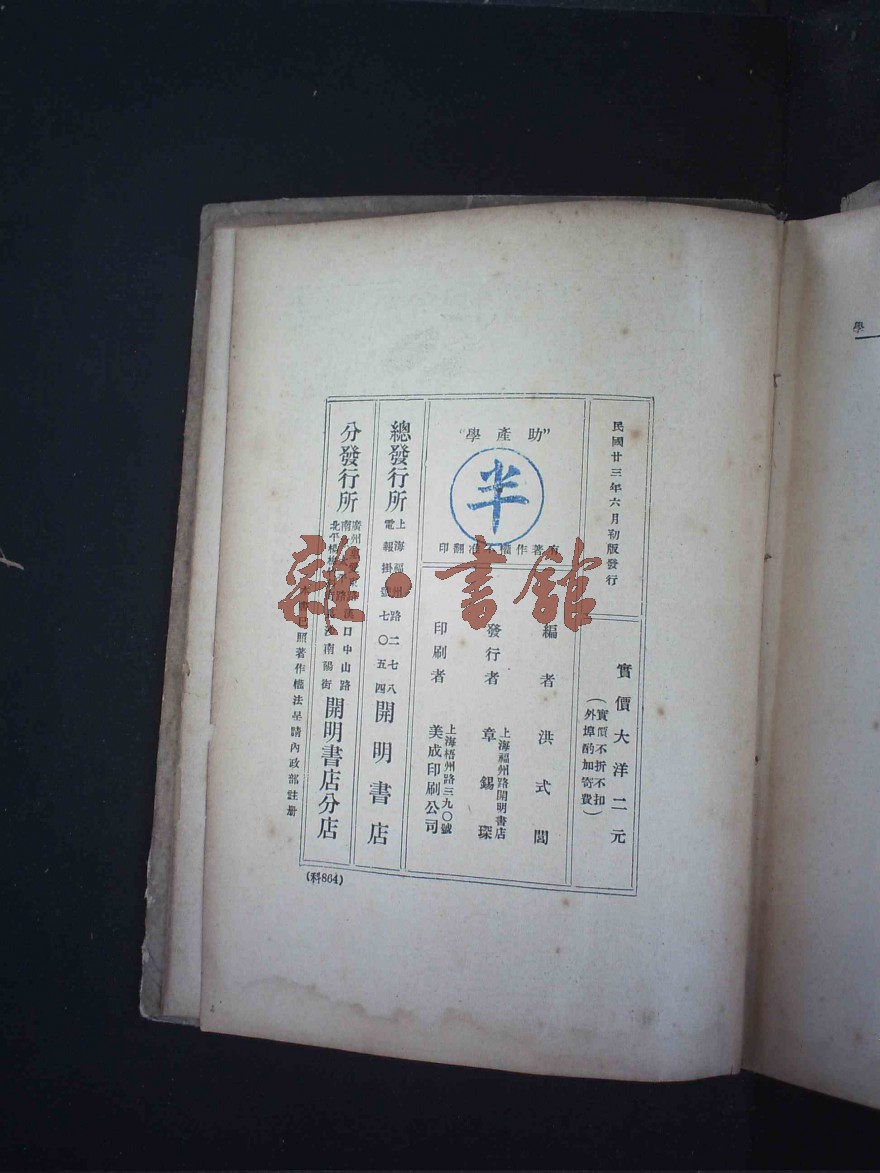 民國廿三年六月初版發行
實價大洋二元
(實價不折不扣
外埠酌加寄費)
"助產學"
半
有著作權不准翻印
編者 洪式閭
發行者 上海福州路開明書店
章錫琛
印刷者 上海梧州路三九〇號
美成印刷公司
總發行所 上海福州路二七八
電報掛號七〇五四
開明書店
分發行所
廣州
漢口中山路
南
北平
南陽街
開明書店分店
照著作權法呈請內政部註冊
(科864)
雜·書館
學